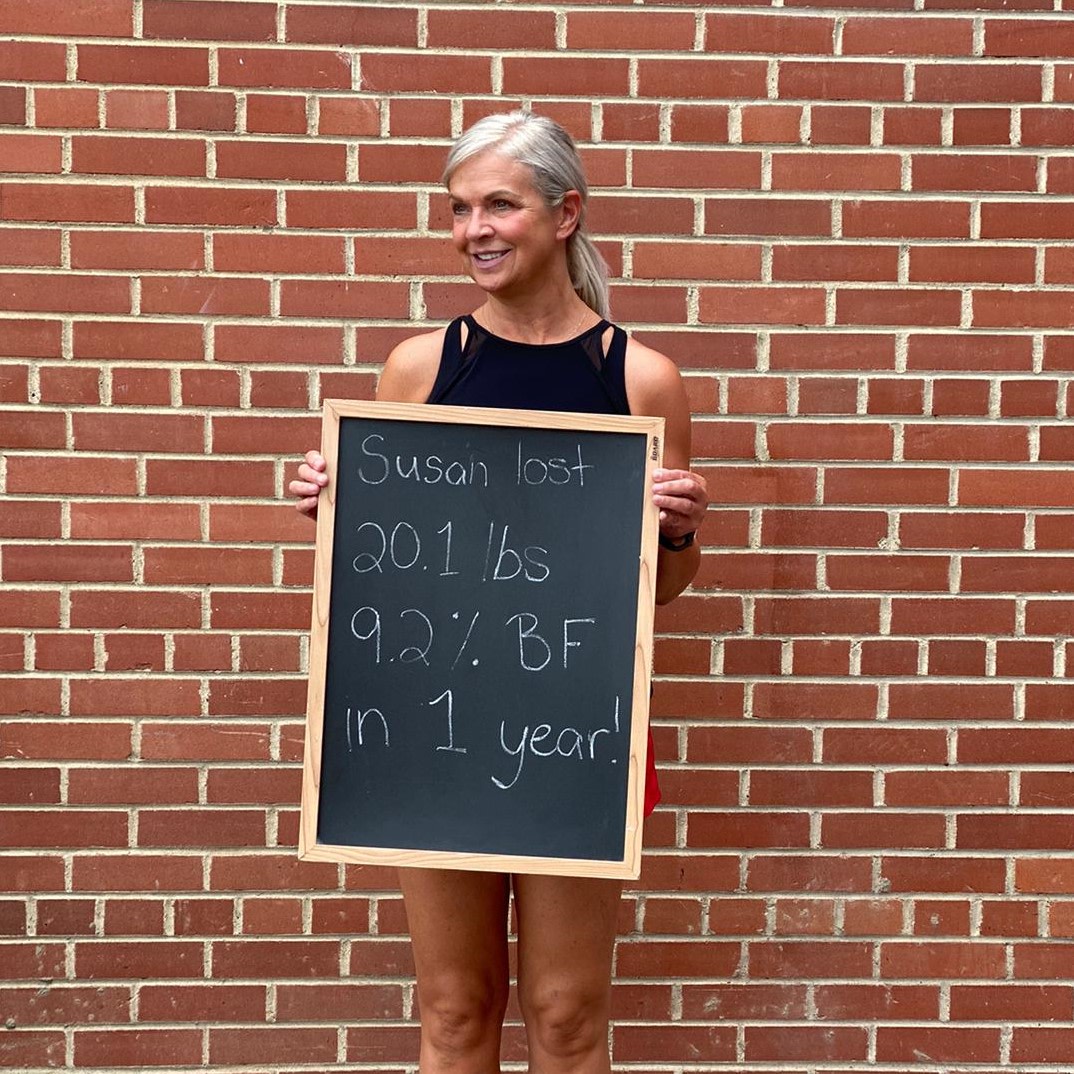 Susan lost
20.1 lbs
9.2% BF
in 1 year!